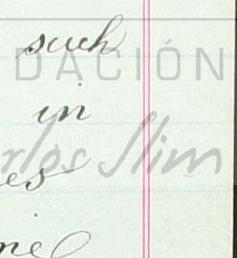 such
DACIÓN
in
arlos Slim
es
me